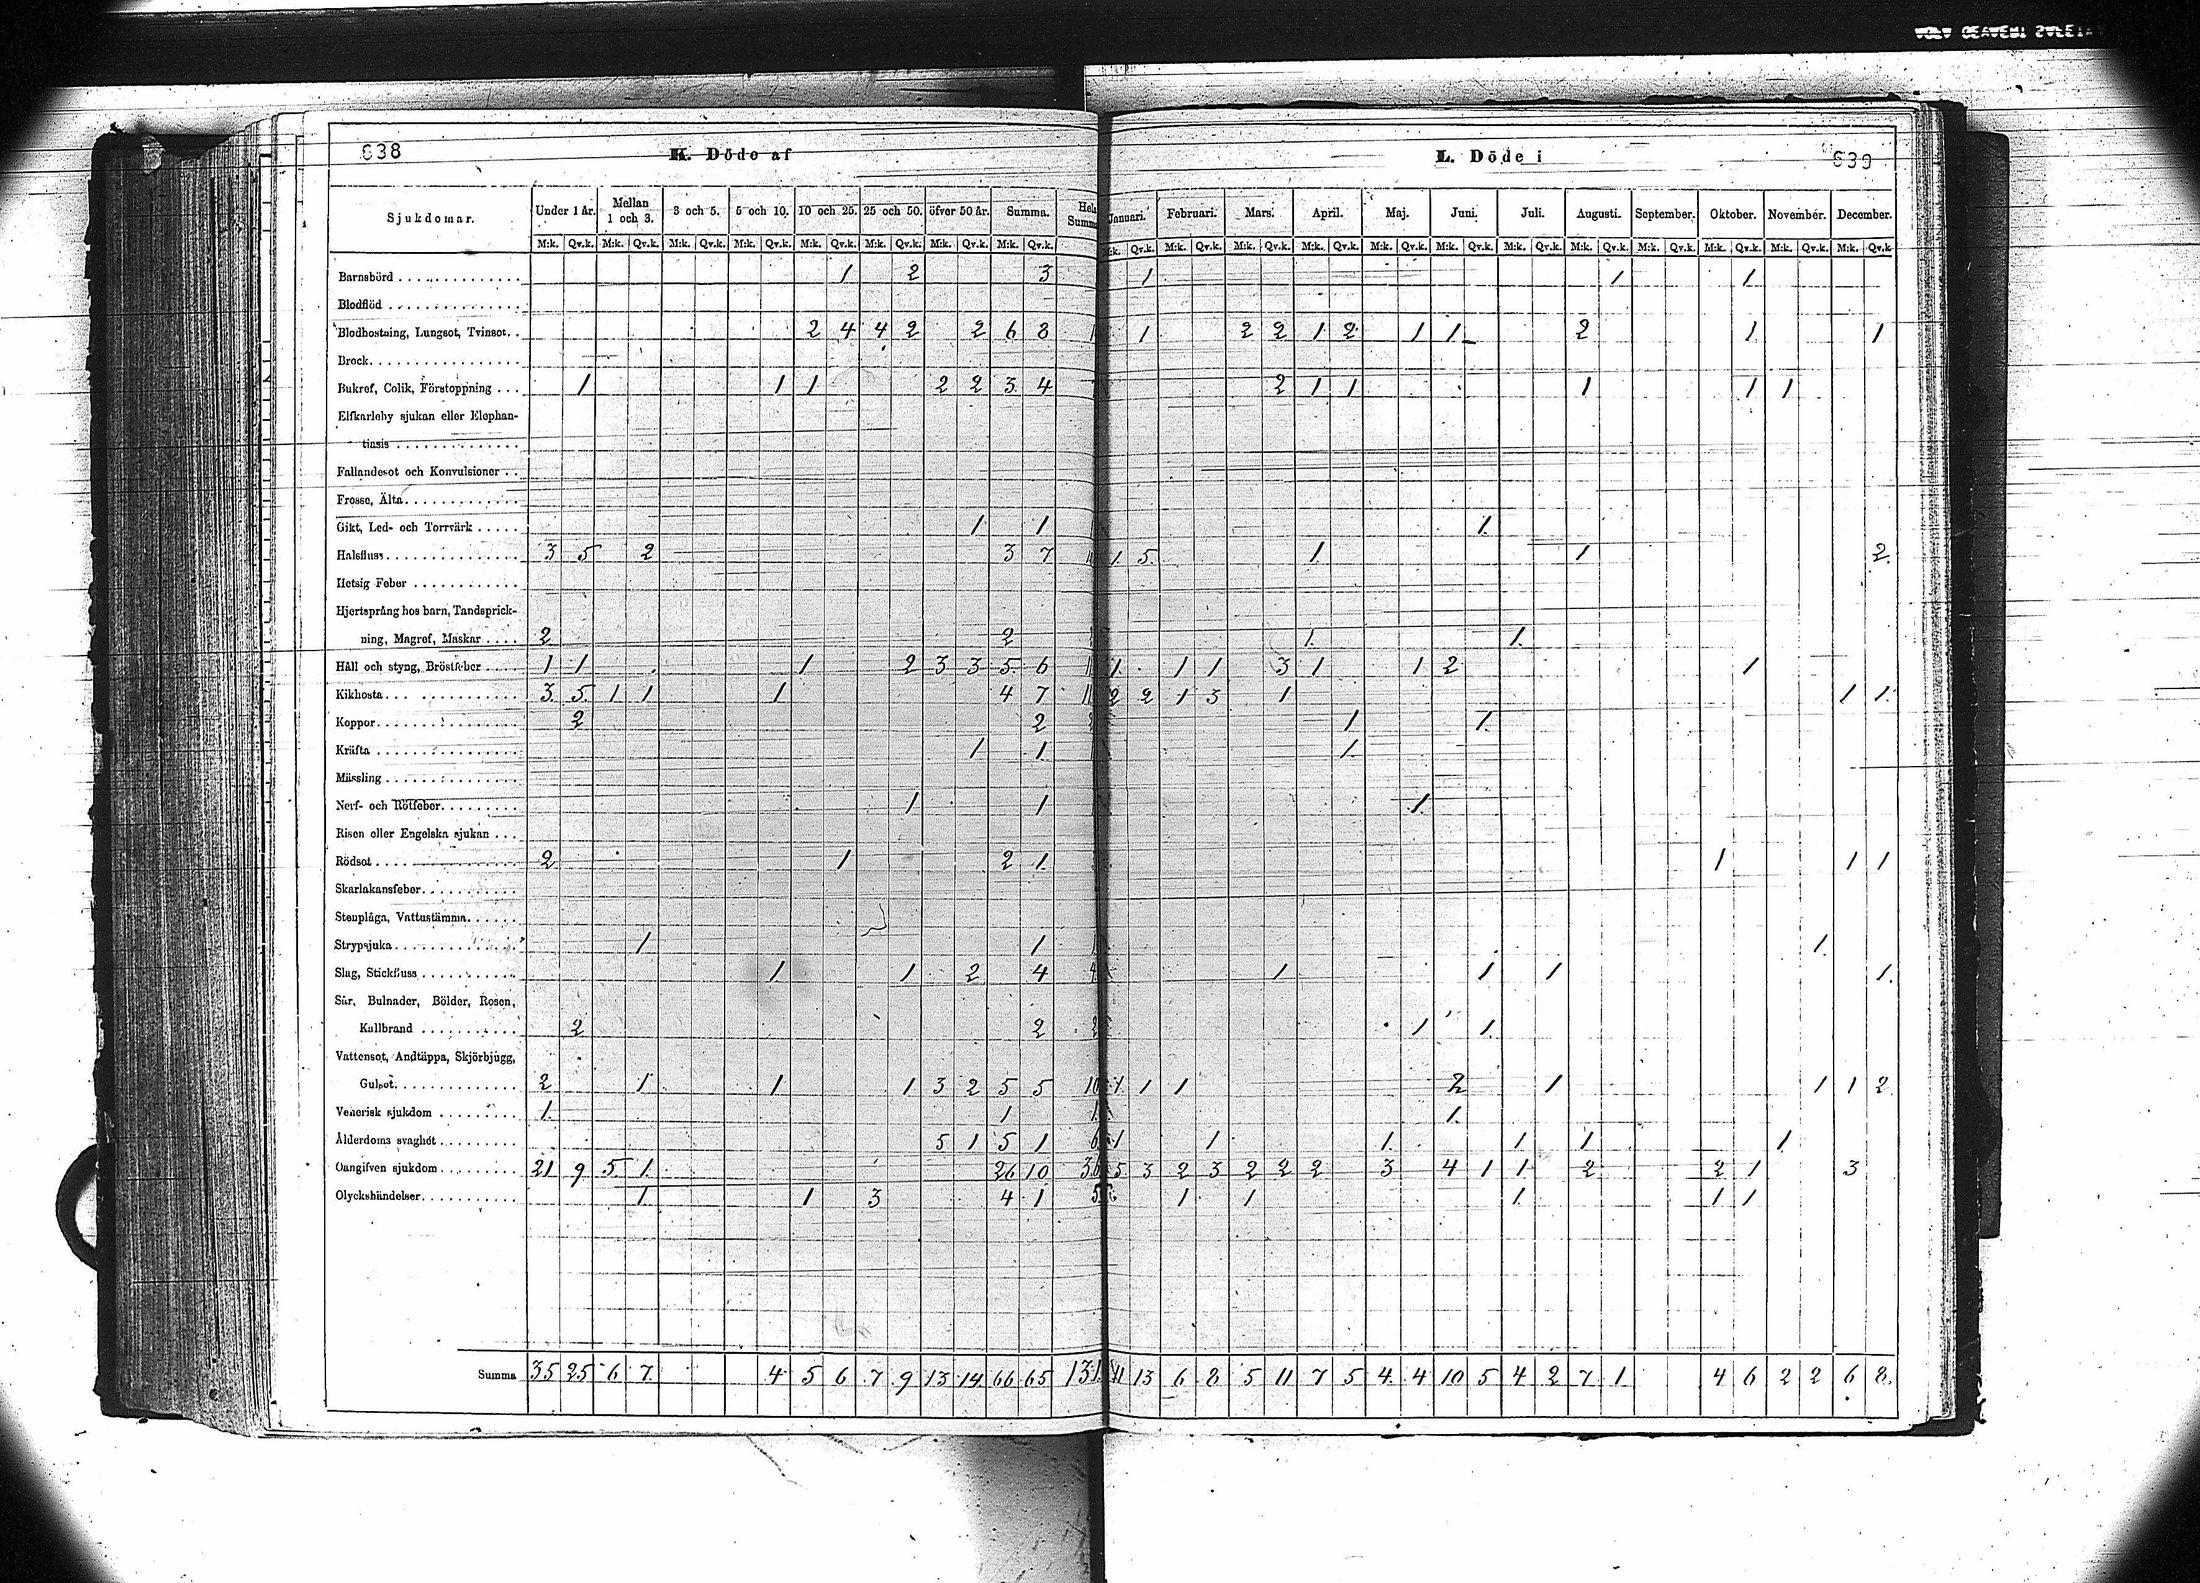 638 K. Döde af L. Döde i 639
Sjukdomar. Under 1 år. Mellan 1 och 3. 3 och 5. 5 och 10. 10 och 25. 25 och 50. öfver 50 år. Summa. Januari. Februari. Mars. April. Maj. Juni. Juli. Augusti. September. Oktober. November. December.
M:k. Qv.k. M:k. Qv.k. M:k. Qv.k. M:k. Qv.k. M:k. Qv.k. M:k. Qv.k. M:k. Qv.k. M:k. Qv.k. M:k. Qv.k. M:k. Qv.k. M:k. Qv.k. M:k. Qv.k. M:k. Qv.k. M:k. Qv.k. M:k. Qv.k. M:k. Qv.k. M:k. Qv.k. M:k. Qv.k. M:k. Qv.k. M:k. Qv.k.
Barnsbörd 1 2 3 1 1 1
Blodflöd
Blodhostning, Lungsot, Tvinsot. 2 4 4 2 2 6 8 1 2 2 1 2 1 1 2 1 1
Brock
Bukref, Colik, Förstoppning 1 1 1 2 2 3 4 2 1 1 1 1 1
Elfkarleby sjukan eller Elephan-
tiasis
Fallandesot och Konvulsioner
Frossa, Älta
Gikt, Led- och Torrvärk 1 1 1
Halsfluss 3 5 2 3 7 1 5 1 1 2
Hetsig Feber
Hjertsprång hos barn, Tandsprick-
ning, Magref, Maskar 2 2 1 1
Håll och styng, Bröstfeber 1 1 1 2 3 3 5 6 1 1 1 3 1 1 2 1
Kikhosta 3 5 1 1 1 4 7 11 2 2 1 3 1 1 1
Koppor 2 2 1 1
Kräfta 1 1 1
Mässling
Nerf- och Rötfeber 1 1 1
Risen eller Engelska sjukan
Rödsot 2 1 2 1 1 1 1
Skarlakansfeber
Stenplåga, Vattustämma
Strypsjuka 1 1 1
Slag, Stickfluss 1 1 2 4 4 1 1 1 1
Sår, Bulnader, Bölder, Rosen,
Kallbrand 2 2 2 1 1
Vattensot, Andtäppa, Skjörbjugg,
Gulsot 2 1 1 1 3 2 5 5 10 1 1 1 2 1 1 1 2
Venerisk sjukdom 1 1 1 1
Ålderdoms svaghet 5 1 5 1 6 1 1 1 1 1 1
Oangifven sjukdom 21 9 5 1 26 10 36 5 3 2 3 2 2 2 3 4 1 1 2 2 1 3
Olyckshändelser 1 1 3 4 1 5 1 1 1 1 1
Summa 35 25 6 7 4 5 6 7 9 13 14 66 65 131 11 13 6 8 5 11 7 5 4 4 10 5 4 2 7 1 4 6 2 2 6 8